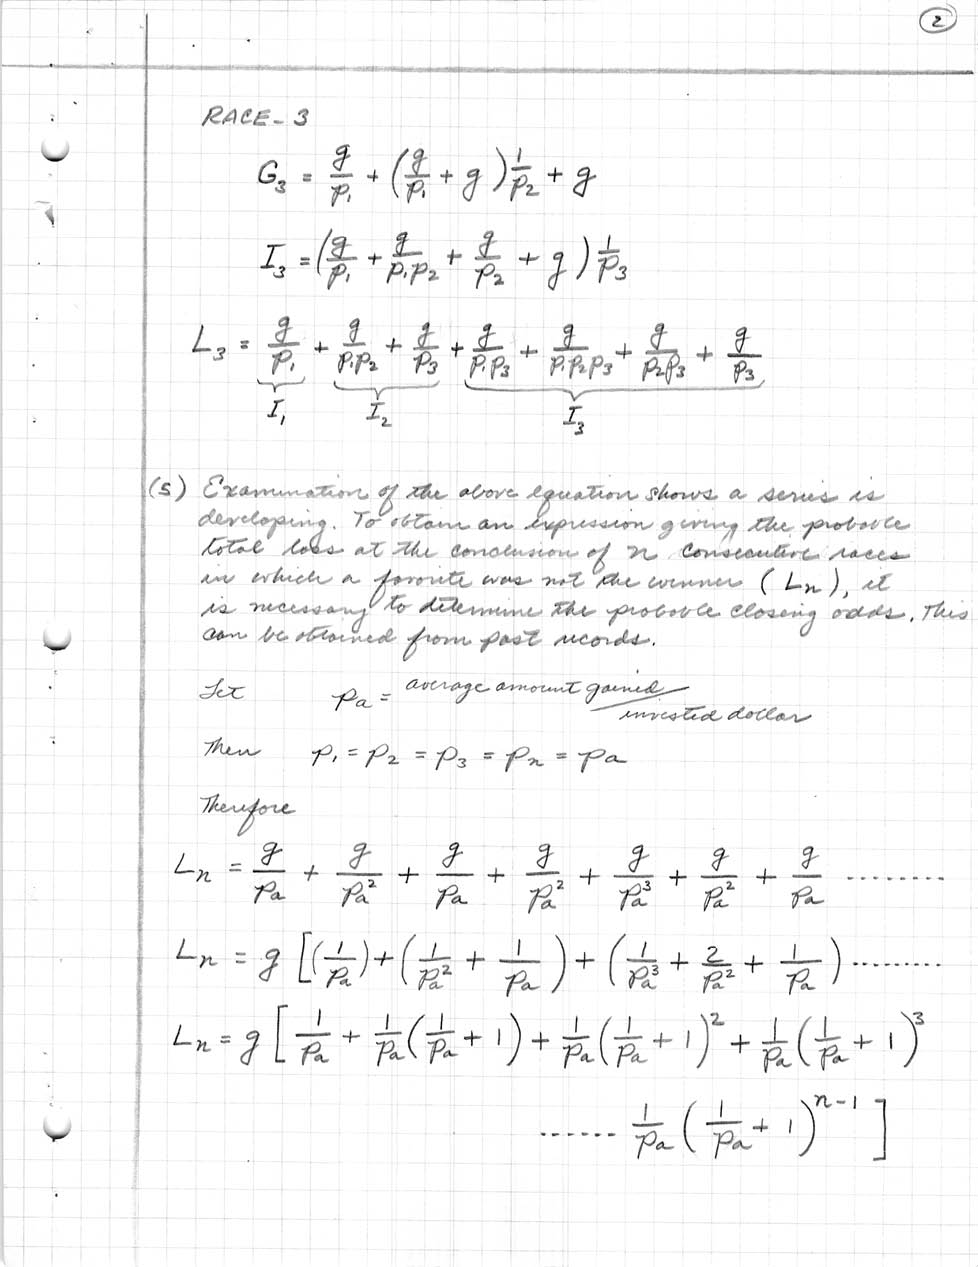 2
RACE - 3
G₃ = g/p₁ + (g/p₁ + g) 1/p₂ + g
I₃ = (g/p₁ + g/p₁p₂ + g/p₂ + g) 1/p₃
L₃ = g/p₁ + g/p₁p₂ + g/p₃ + g/p₁p₃ + g/p₁p₂p₃ + g/p₂p₃ + g/p₃
I₁ I₂ I₃
(5) Examination of the above equation shows a series is
developing. To obtain an expression giving the probable
total loss at the conclusion of n consecutive races
in which a favorite was not the winner (Lₙ), it
is necessary to determine the probable closing odds. This
can be obtained from past records.
Let pₐ = average amount gained/invested dollar
Then p₁ = p₂ = p₃ = pₙ = pₐ
Therefore
Lₙ = g/pₐ + g/pₐ² + g/pₐ + g/pₐ² + g/pₐ³ + g/pₐ² + g/pₐ .........
Lₙ = g [(1/pₐ) + (1/pₐ² + 1/pₐ) + (1/pₐ³ + 2/pₐ² + 1/pₐ) .........
Lₙ = g [1/pₐ + 1/pₐ(1/pₐ + 1) + 1/pₐ(1/pₐ + 1)² + 1/pₐ(1/pₐ + 1)³
....... 1/pₐ (1/pₐ + 1)ⁿ⁻¹ ]